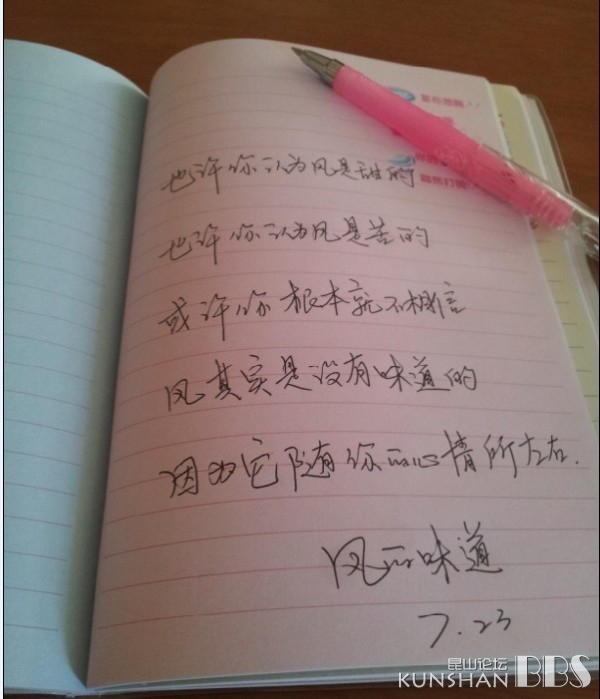 也许你认为风是甜的
也许你认为风是苦的
或许你根本就不相信
风其实是没有味道的
因为它随你而心情所左右.
风的味道
7.23
昆山论坛
KUNSHAN BBS